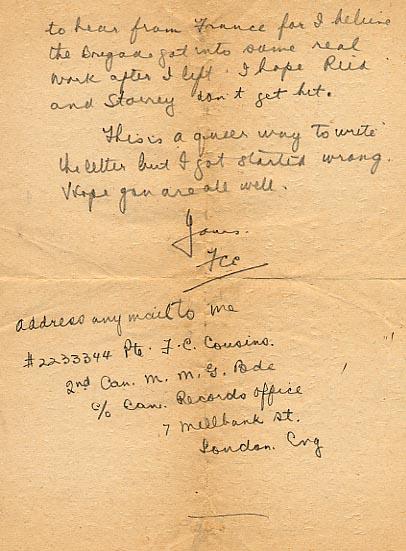 to hear from France for I believe
the Brigade got into some real
work after I left. I hope Reid
and Storrey don't get hit.
This is a queer way to write
the letter but I got started wrong.
I hope you are all well.
Yours.
FCC
Address any mail to me
#2233344 Pte. F. C. Cousins.
2nd Can. M. M. G. Bde
c/o Can. Records Office
7 Millbank St.
London. Eng